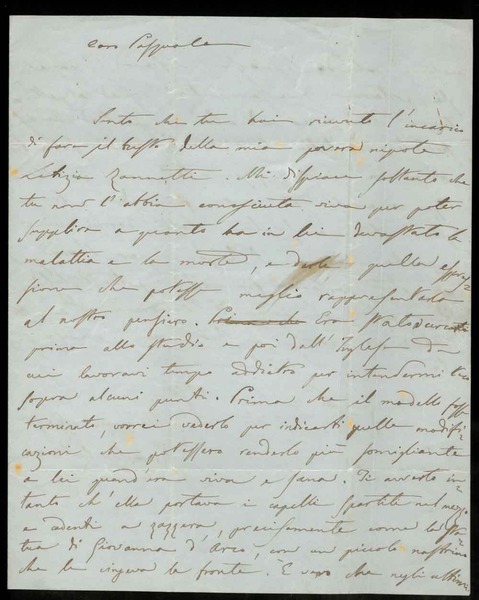 Caro Pasquale
Sento che tu hai ricevuto l'incarico
di fare il busto della mia povera nipote
Letizia Zannetti. Mi dispiace soltanto che
tu non l'abbia conosciuta viva per poter
supplire a quanto ha in lei devastato la
malattia e la morte, e darle quella espres=
sione che potesse meglio rappresentarla
al nostro pensiero. Prima che Era
prima allo studio e poi dall' Inglese da
cui lavoravi tempo addietro per intendermi teco
sopra alcuni punti. Prima che il modello fosse
terminato, vorrei vederlo per indicarti quelle modifi=
cazioni che potessero renderlo più somigliante
a lei quand'era viva e sana. Ti avverto in=
tanto ch'ella portava i capelli spartiti nel mezzo
e adenti a zazzera, precisamente come la sta=
tua di Giovanna d'Arco, con un piccolo nastrino
che le cingeva la fronte. È vero che negli ultimi